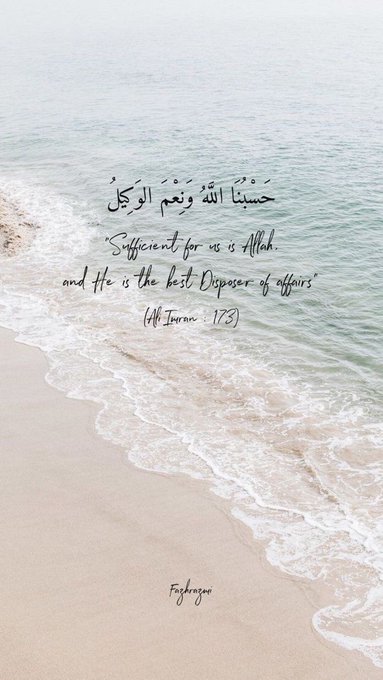 حَسْبُنَا اللَّهُ وَنِعْمَ الوَكِيلُ
"Sufficient for us is Allah,
and He is the best Disposer of affairs"
(Ali Imran : 173)
Fazhrazmi